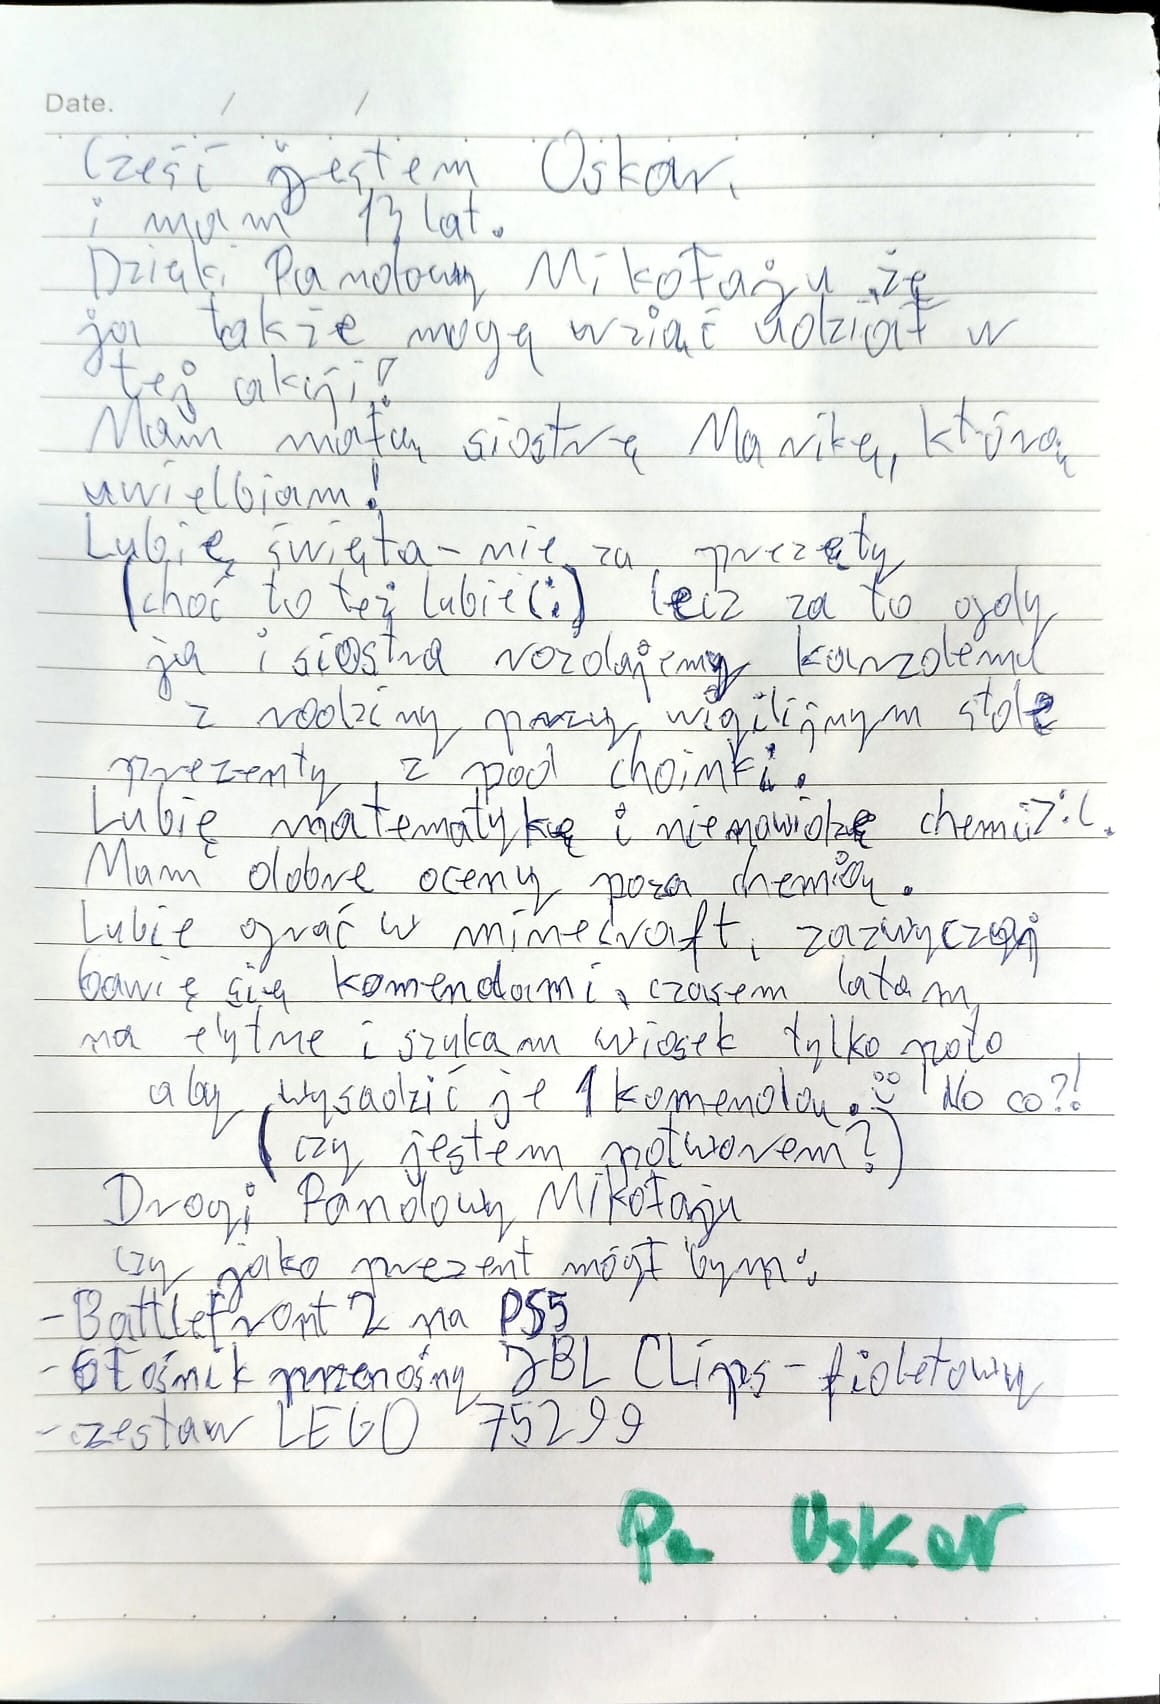 Date. / /
Cześć jestem Oskar.
i mam 13 lat.
Dzięki Pandowy Mikołaju że
ja także mogę wziąć udział w
tej akcji!
Mam małą siostrę Marikę, którą
uwielbiam!
Lubię święta - nie za prezęty
(choć to też lubię(:) lecz za to gdy
ja i siostra rozdajemy każdemu
z rodziny przy wigilijnym stole
prezenty z pod choinki.
Lubię matematykę i nienawidzę chemii>:(.
Mam dobre oceny poza chemią.
Lubię grać w minecraft, zazwyczaj
bawię się komendami, czasem latam
na elytrze i szukam wiosek tylko poto
aby wysadzić je 1 komendą. No co?!
(czy jestem potworem?)
Drogi Pandowy Mikołaju
czy jako prezent mógł bym:
- Battlefront 2 na PS5
- Głośnik przenośny JBL CLips - fioletowy
- zestaw LEGO 75299
Pa Oskar